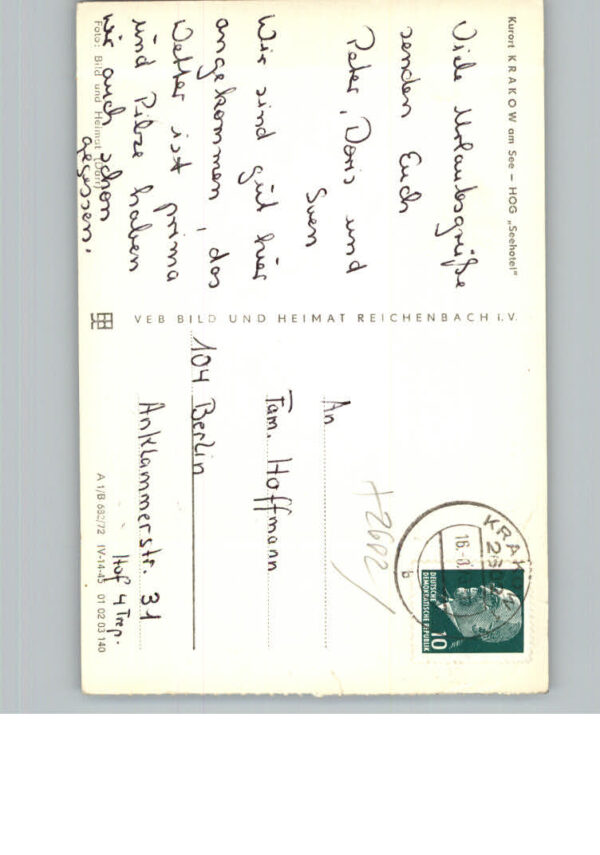 Kurort KRAKOW am See – HOG „Seehotel"
Viele Urlaubsgrüße
senden Euch
Peter, Doris und
Sven
Wir sind gut hier
angekommen, das
Wetter ist prima
und Pilze haben
wir auch schon
gegessen.
Foto: Bild und Heimat (Darr)
VEB BILD UND HEIMAT REICHENBACH i. V.
KRAK
16.
b
DEUTSCHE
DEMOKRATISCHE REPUBLIK
10
+2602/
An
Fam. Hoffmann
104 Berlin
Anklammerstr. 31
Hof 4 Trep.
A 1/B 682/72 IV-14-45 01 02 03 140